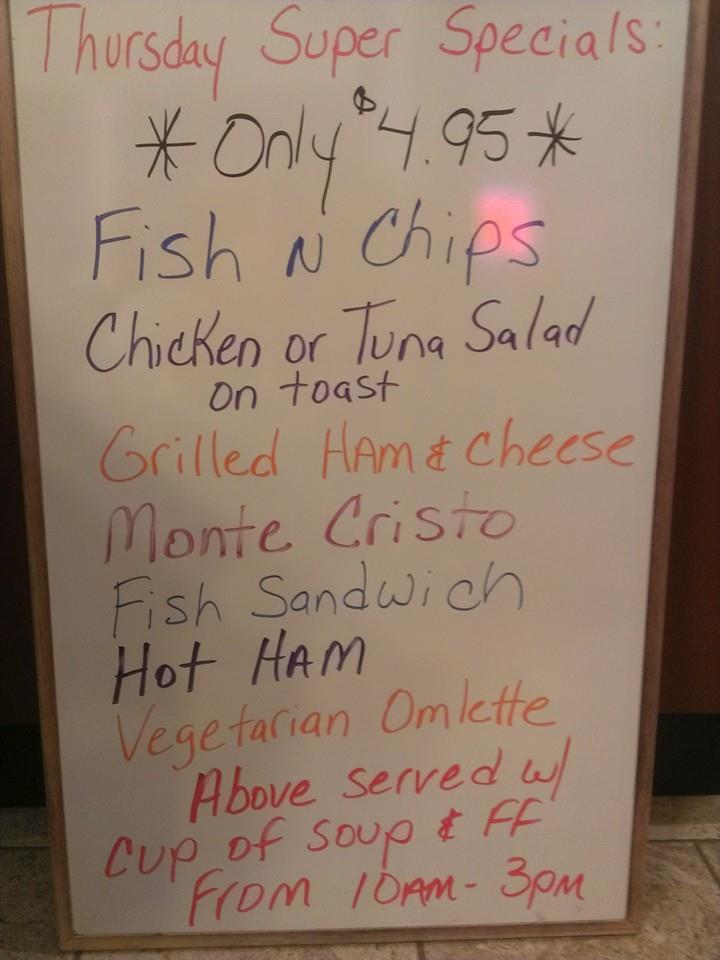 Thursday Super Specials:
* Only $4.95 *
Fish N Chips
Chicken or Tuna Salad
on toast
Grilled HAM & cheese
Monte Cristo
Fish Sandwich
Hot HAM
Vegetarian Omlette
Above served w/
cup of soup & FF
From 10AM - 3PM